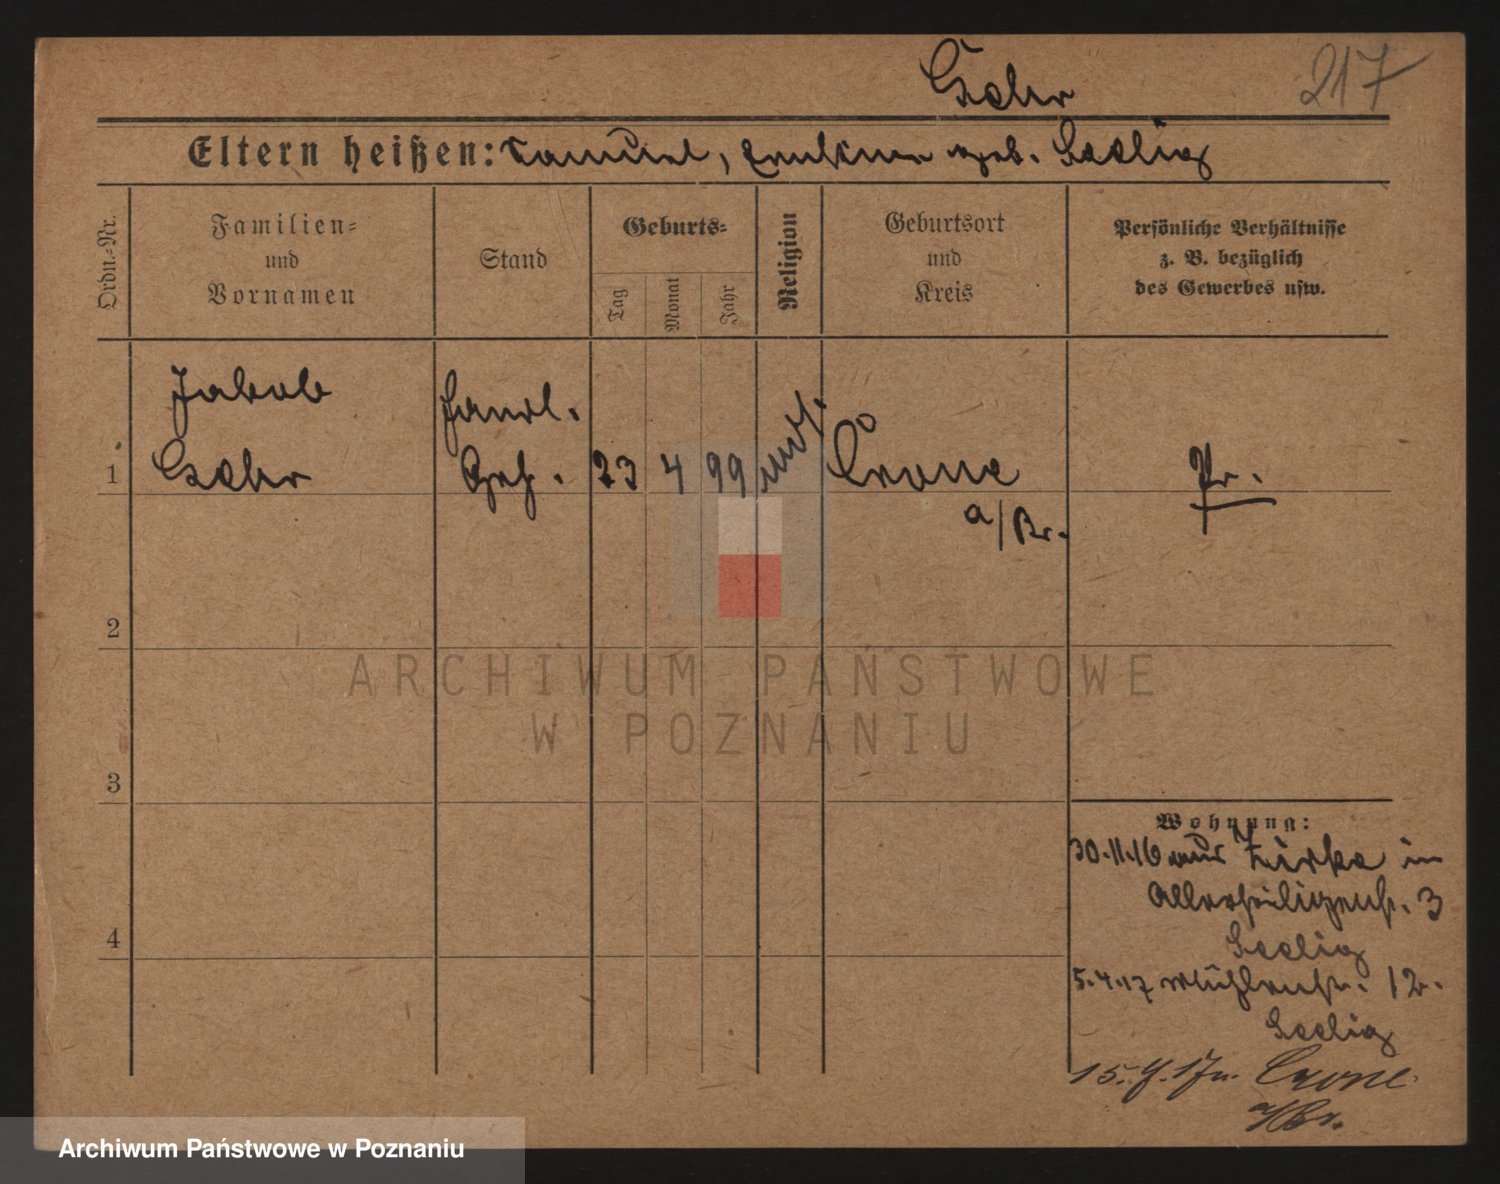 217
Eltern heißen: Samuel, geb. Seelig
Ordn.-Nr.
Familien-
und
Vornamen
Stand
Geburts-
Tag
Monat
Jahr
Religion
Geburtsort
und
Kreis
Persönliche Verhältnisse
z. B. bezüglich
des Gewerbes usw.
Jakob
Handl.
1
Geh. 23 4 99 mos. Crone
a/Br.
Pr.
2
ARCHIWUM PAŃSTWOWE
W POZNANIU
3
Wohnung:
30.11.16 aus Zirke in
Allerheiligenstr. 3
4
Seelig
5.4.17 Mühlenstr. 12.
Seelig
15. 17 n. Crone
a/Br.
Archiwum Państwowe w Poznaniu